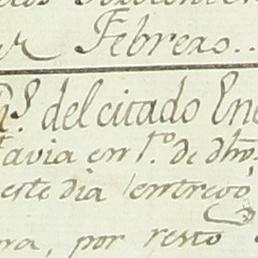 Febrero..
q.s del citado Ene
avia en 1.o de dho
este dia entregó
ra, por resto